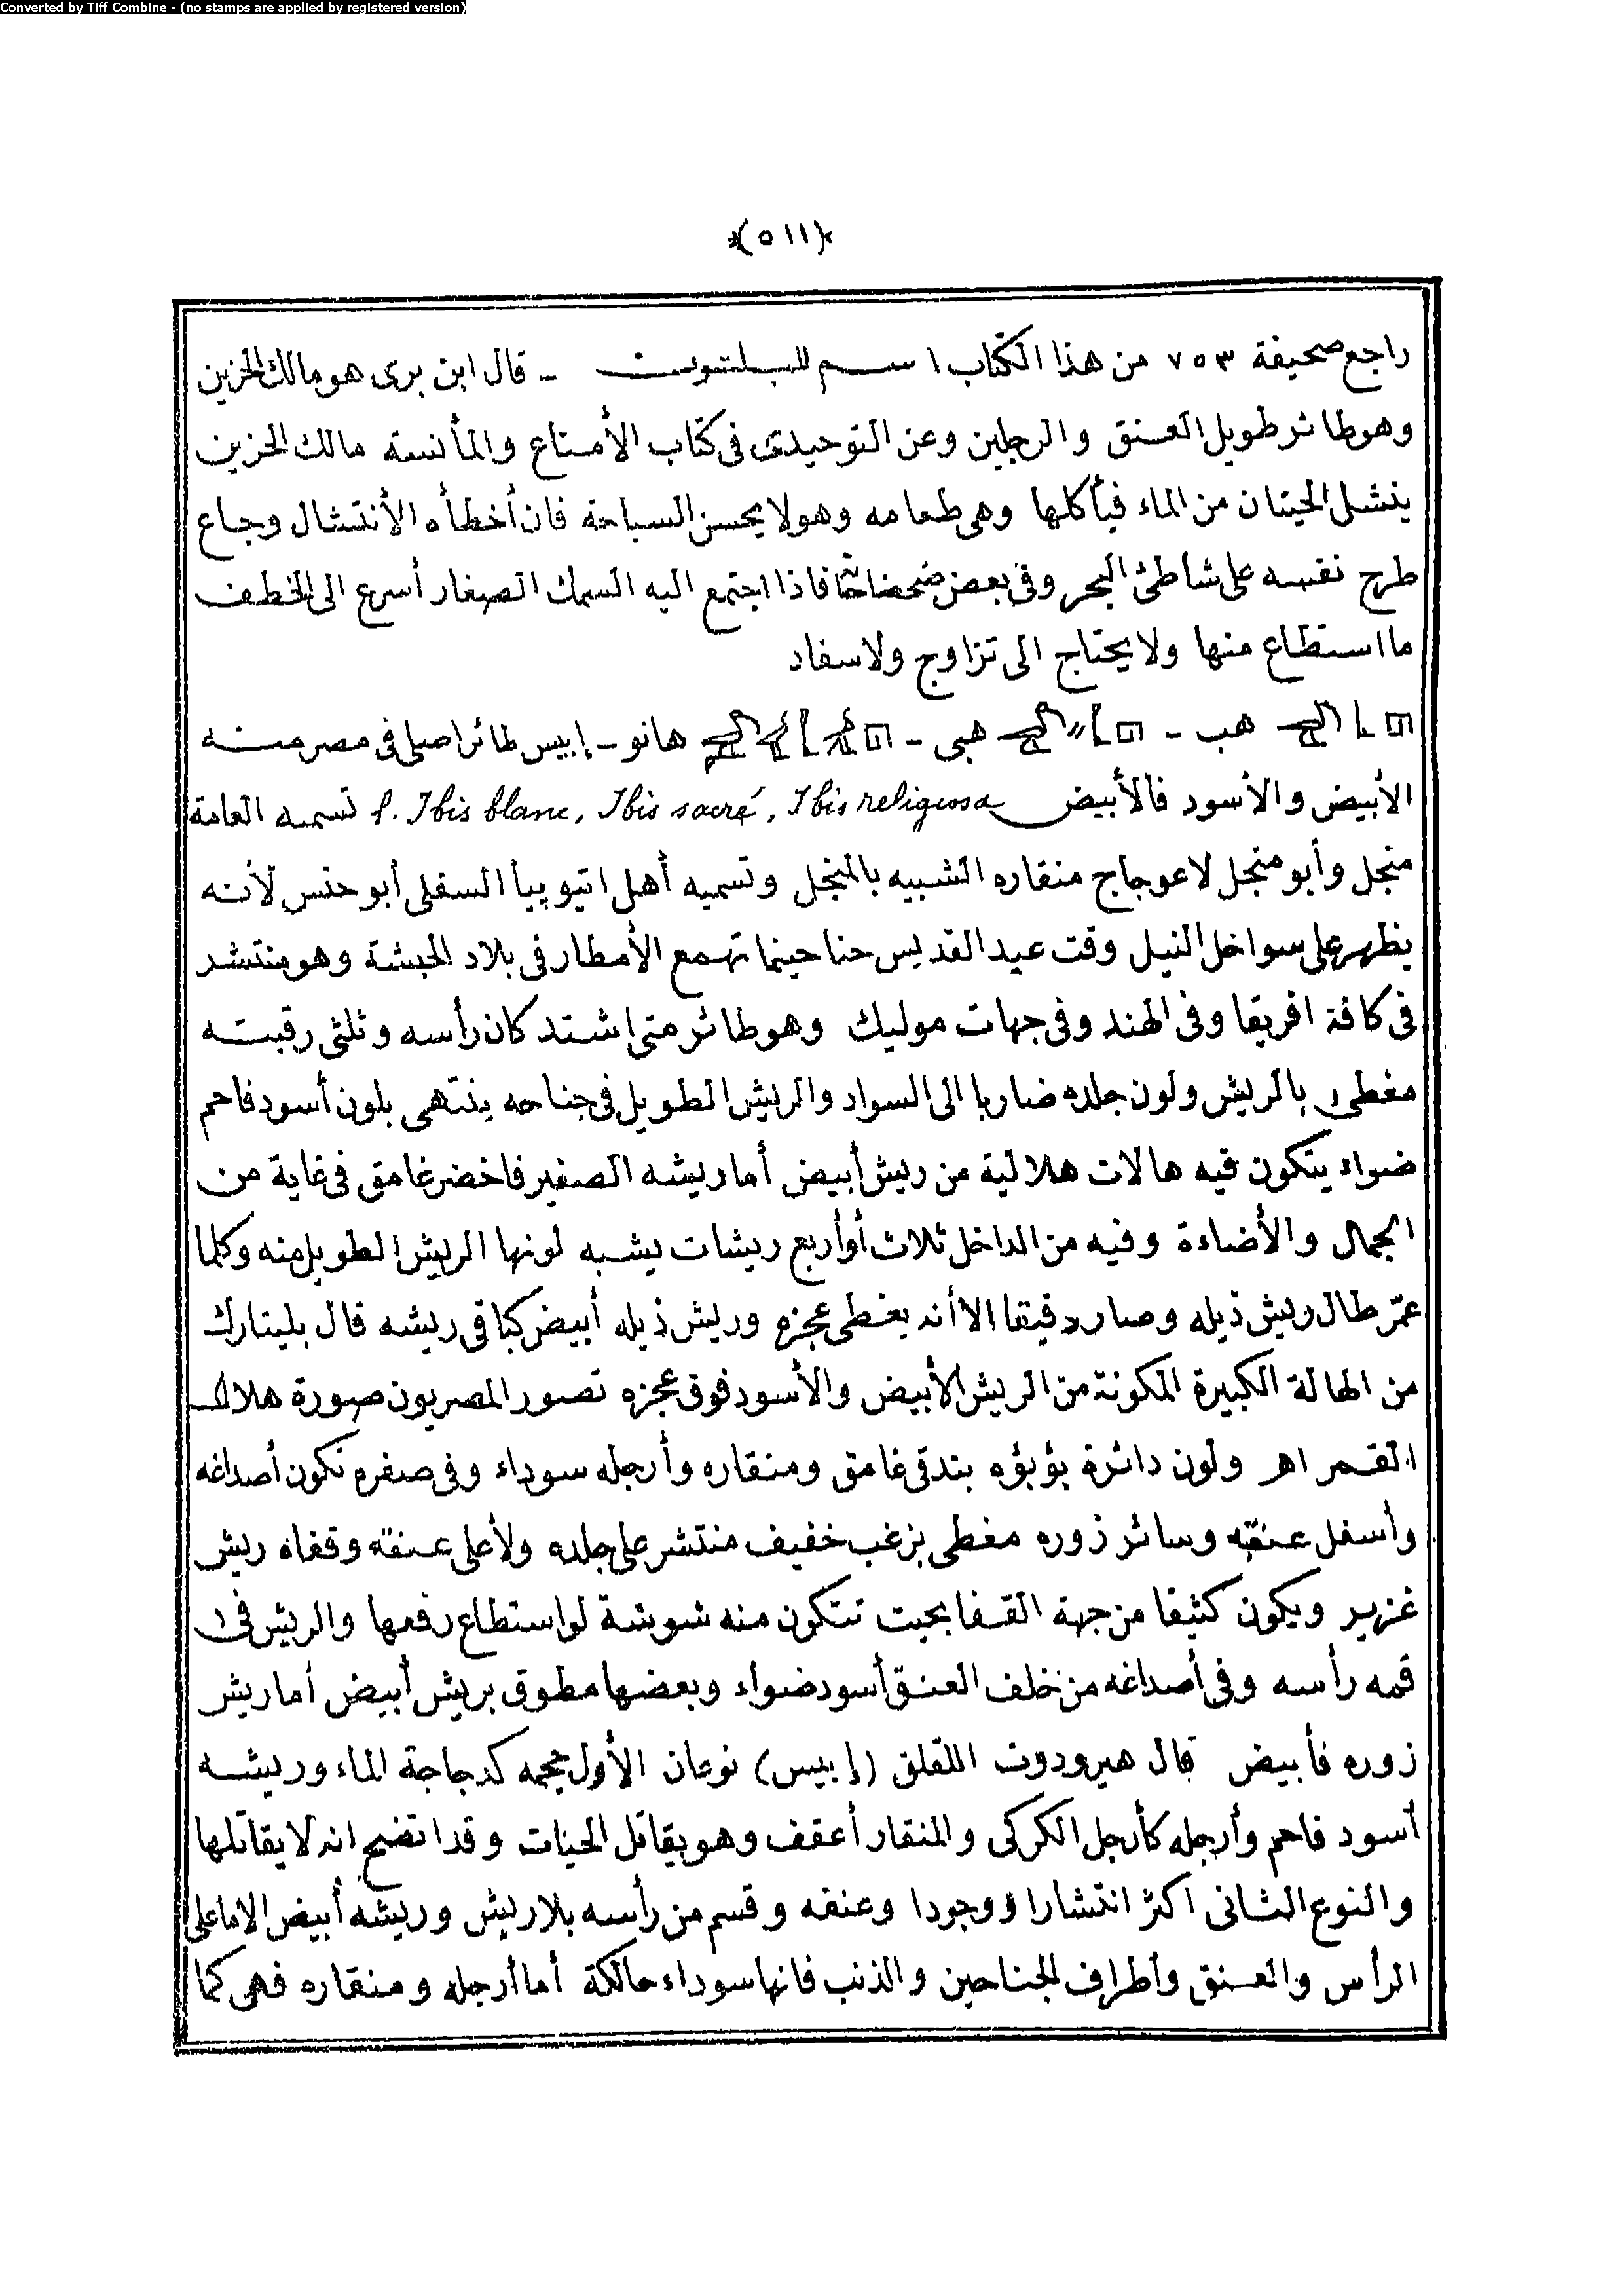 Converted by Tiff Combine - (no stamps are applied by registered version)
*(٥١١)*
راجع صحيفة ٧٥٣ من هذا الكتاب اسم للبلشون - قال ابن برى هو مالك الحزين
وهو طائر طويل العنق والرجلين وعن التوحيدى فى كتاب الأمتاع والمأنسة مالك الحزين
ينشل الحيتان من الماء فيأكلها وهى طعامه وهو لا يحسن السباحة فان أخطأه الأنتشال وجاع
طرح نفسه على شاطئ البحر وفى بعض ضحضاحها فاذا اجتمع اليه السمك الصغار أسرع الى الخطف
ما استطاع منها ولا يحتاج الى تزاوج ولا سفاد
هب - هبى - هانو - إبيس طائر اصلى فى مصر منه
الأبيض والأسود فالأبيض f. Ibis blanc, Ibis sacré, Ibis religiosa تسميه العامة
منجل وأبو منجل لاعوجاج منقاره الشبيه بالمنجل وتسميه أهل اتيوپيا السفلى أبو حنس لأنه
يظهر على سواحل النيل وقت عيد القديس حنا حينما تهمع الأمطار فى بلاد الحبشة وهو منتشر
فى كافة افريقا وفى الهند وفى جهات موليك وهو طائر متى اشتد كان رأسه وثلثى رقبته
مغطى بالريش ولون جلده ضاربا الى السواد والريش الطويل فى جناحه ينتهى بلون أسود فاحم
ضواء يتكون فيه هالات هلالية من ريش أبيض أما ريشه الصغير فاخضر غامق فى غاية من
الجمال والأضاءة وفيه من الداخل ثلاث أو أربع ريشات يشبه لونها الريش الطويل منه وكلما
عمّر طال ريش ذيله وصار دقيقا الا أنه يغطى عجزه وريش ذيله أبيض كباقى ريشه قال بليتارك
من الهالة الكبيرة المكونة من الريش الأبيض والأسود فوق عجزه تصور المصريون صورة هلال
القمر اهر ولون دائرة بؤبؤه بندقى غامق ومنقاره وأرجله سوداء وفى صغره تكون أصداغه
وأسفل عنقه وسائر زوره مغطى بزغب خفيف منتشر على جلده ولأعلى عنقه وقفاه ريش
غزير ويكون كثيفا من جهة القفا بحيث تتكون منه شوشة لو استطاع رفعها والريش فى
قمه رأسه وفى أصداغه من خلف العنق أسود ضواء وبعضها مطوق بريش أبيض أما ريش
زوره فأبيض قال هيرودوت اللقلق (إبيس) نوعان الأول حجمه كدجاجة الماء وريشه
أسود فاحم وأرجله كأرجل الكركى والمنقار أعقف وهو يقاتل الحيات وقد اتضح انه لا يقاتلها
والنوع الثانى اكثر انتشارا ووجودا وعنقه وقسم من رأسه بلا ريش وريشه أبيض الا ما على
الرأس والعنق وأطراف الجناحين والذنب فانها سوداء حالكة أما أرجله ومنقاره فهى كما